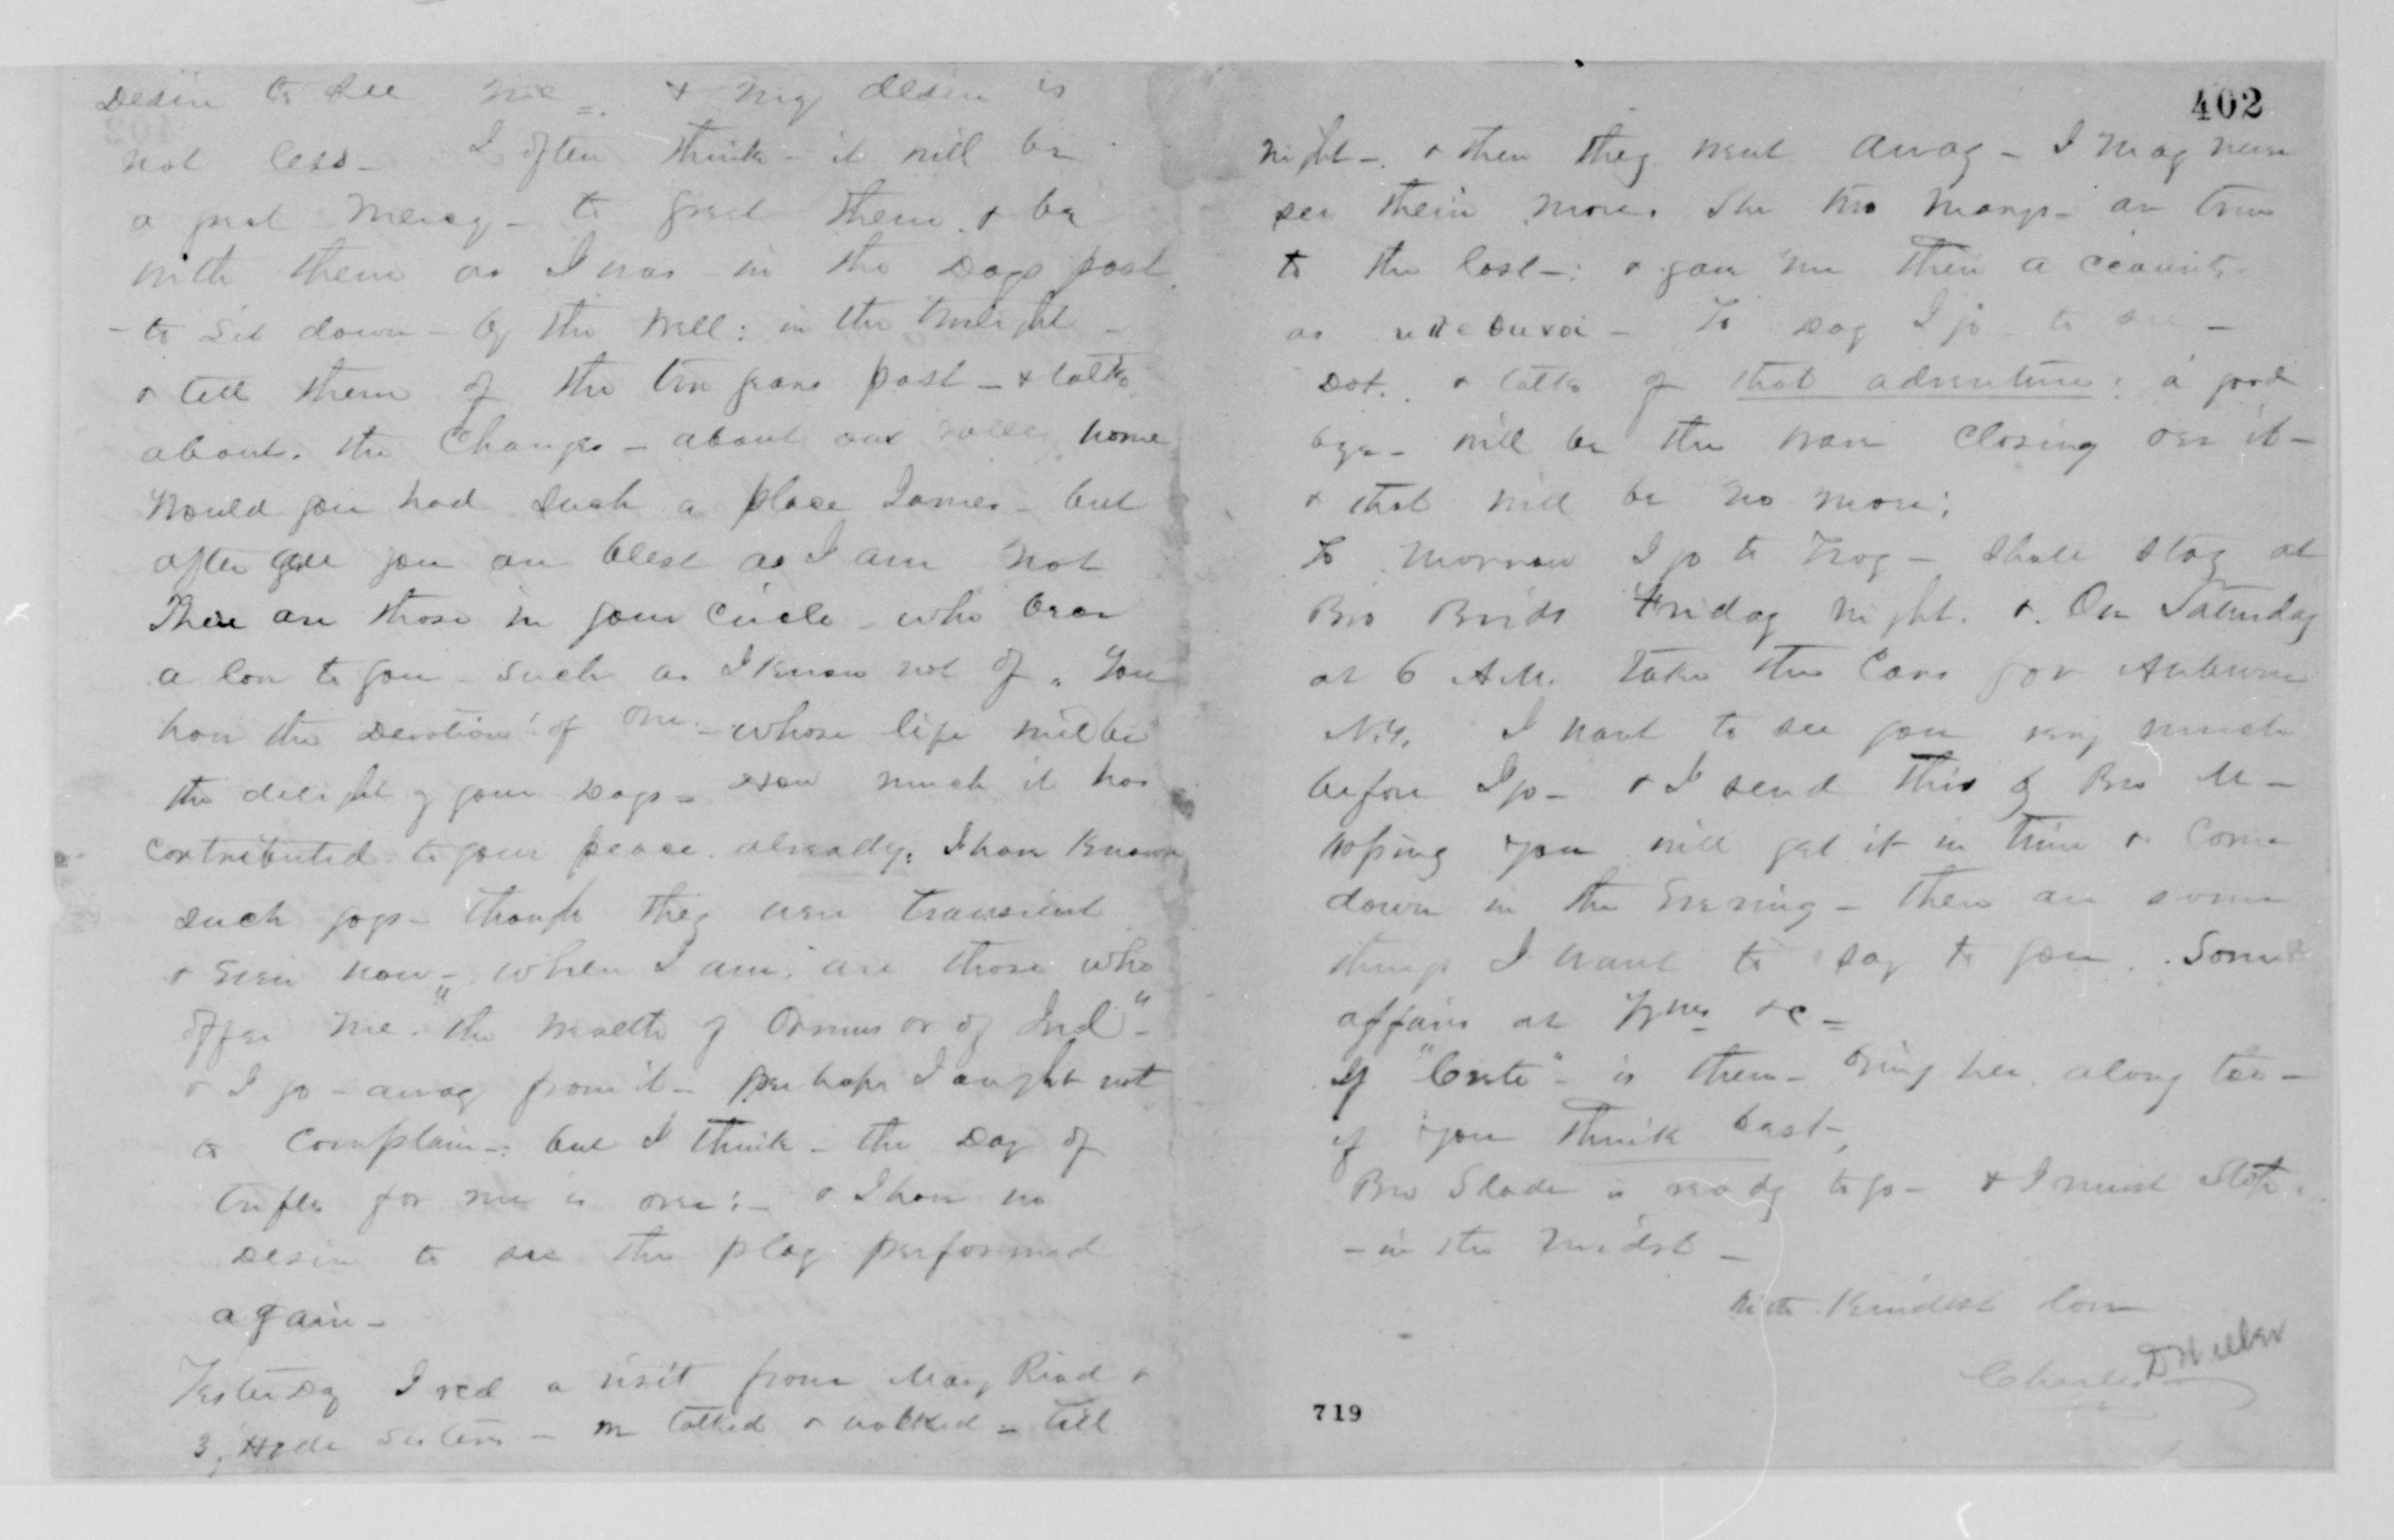 desire to see me =. & my desire is
not less - I often think - it will be
a great mercy - to greet them & be
with them as I was in the days past.
- to sit down - by the well: in the twilight -
& tell them of the two years past - & talk
about. the Changes - about our home
Would you had such a place James - but
after all you are blest as I am not
There are those in your circle - who bear
a love to you - such as I know not of. You
have the devotion of one - whose life will be
the delight of your days - How much it has
contributed to your peace. already, I have known
such joys - though they were transient
& even now - when I am, are those who
offer me. "the wealth of Ormus or of Ind" -
& I go - away from it - perhaps I ought not
to complain -: but I think - the day of
trifles for me is over: - & I have no
desire to see the play performed
again -
Yesterday I recd a visit from Mary Read &
3, Hyde sisters - we talked & walked - till
402
night -. & then they went away - I may never
see them more. The two Marys - are true
to the last -: & gave me their accounts
as - To day I go to see -
Dot. & talk of that adventure: a good
bye - will be the wave closing oer it -
& that will be no more;
To morrow I go to Troy - shall stay at
Bro Birds Friday night. & On Saturday
at 6 A.M. take the Cars for Auburn
N.Y. I want to see you very much
before I go - & I send this by Bro M -
hoping you will get it in time & Come
down in the Evening - there are some
things I want to say to you. Some
affairs at Wms &c =
If is there - bring her along too -
if you think best,
Bro Slade is ready to go - & I must stop.
- in the midst -
With Kindest love
Charles D Wilber
719